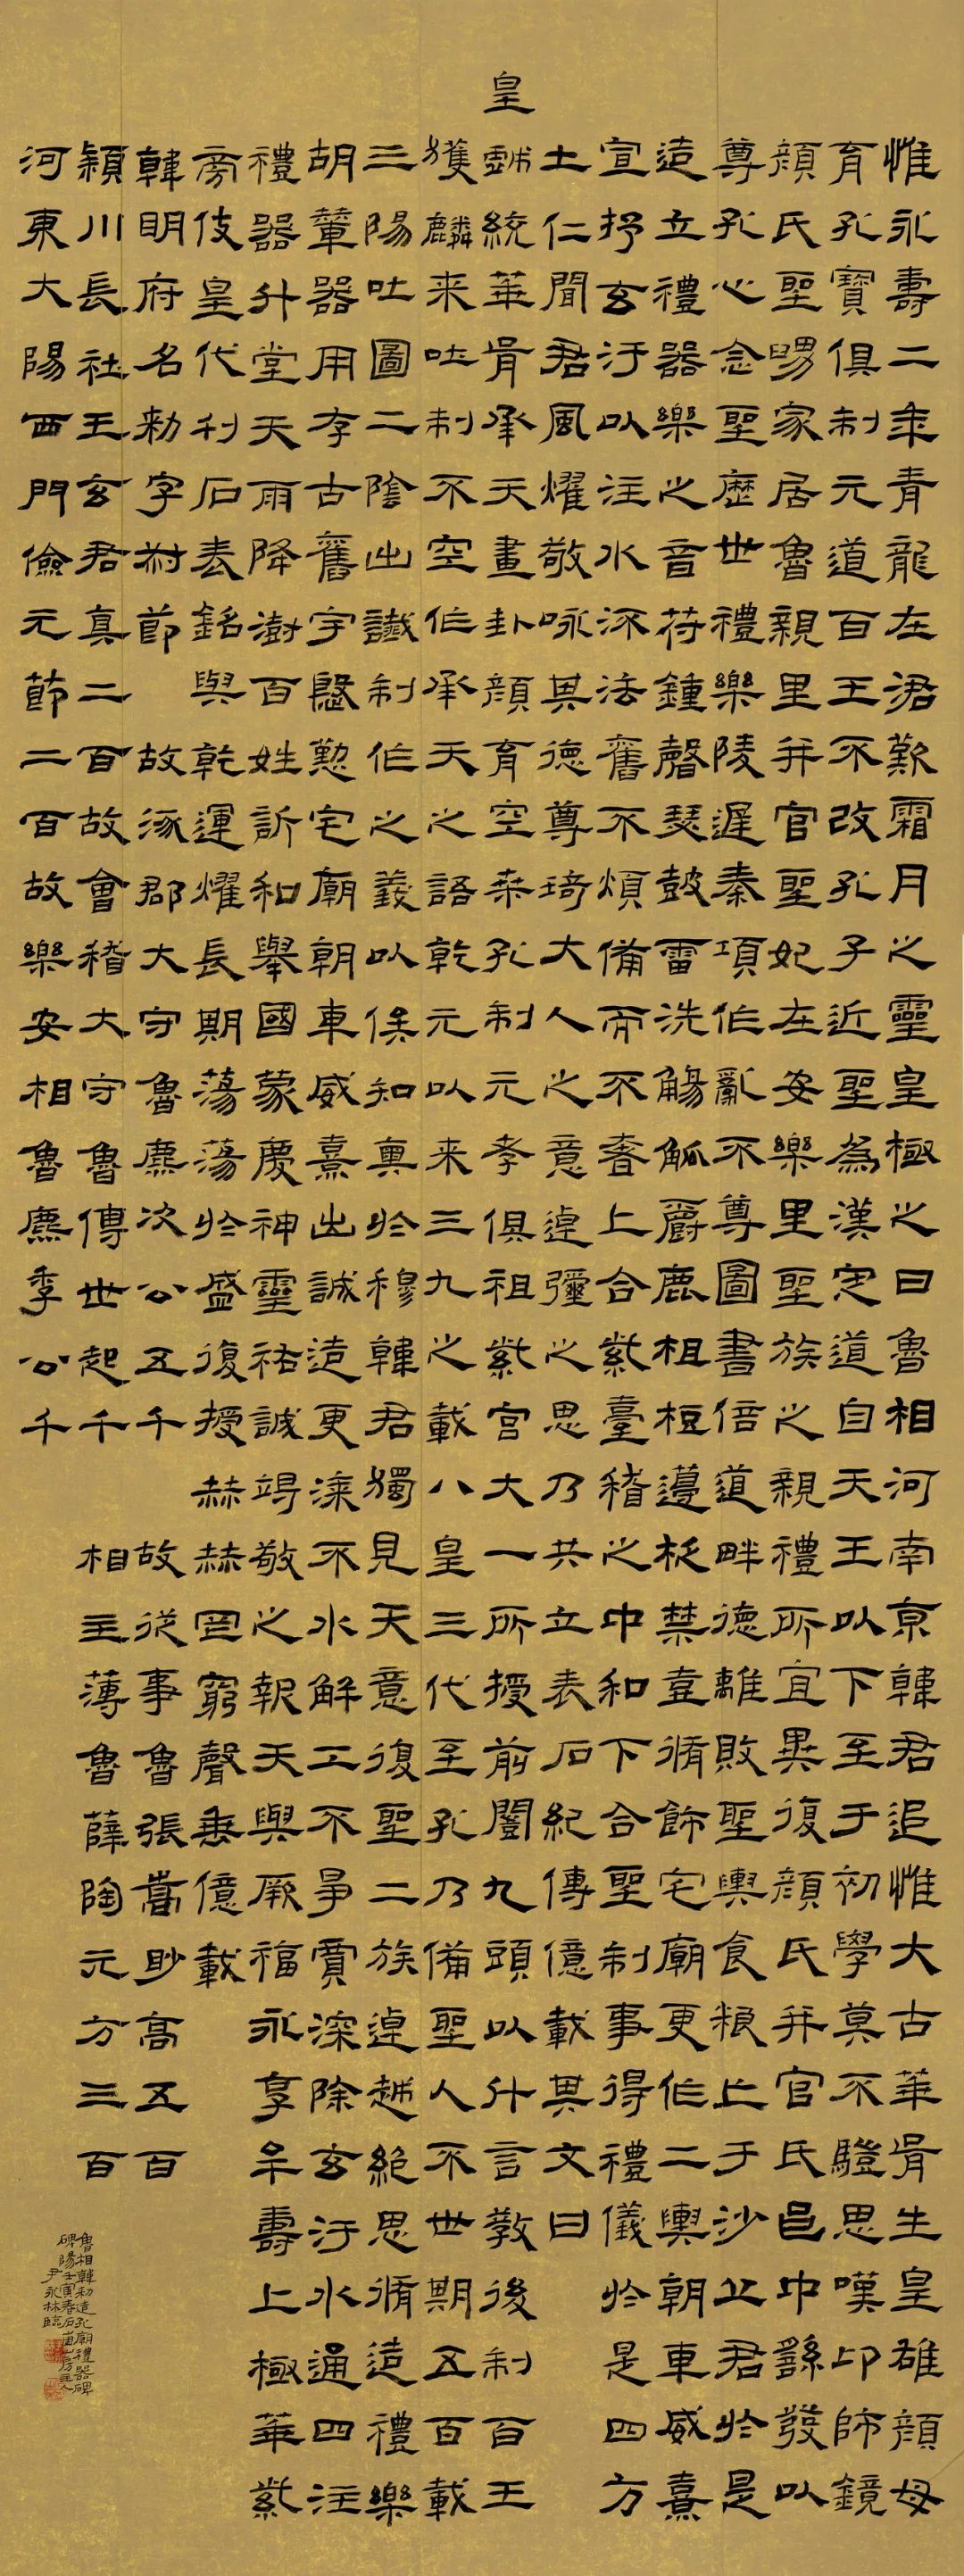 惟永壽二年青龍在涒歎霜月之靈皇極之日魯相河南京韓君追惟大古華胥生皇雄顏母
育孔寶俱制元道百王不改孔子近聖為漢定道自天王以下至于初學莫不驥思嘆卬師鏡
顏氏聖舅家居魯親里并官聖妃在安樂里聖族之親禮所宜異復顏氏并官氏邑中繇發以
尊孔心念聖歷世禮樂陵遲秦項作亂不尊圖書倍道畔德離敗聖輿食粮亡于沙丘君於是
造立禮器樂之音符鍾磬瑟鼓雷洗觴觚爵鹿柤桓籩柉禁壺脩飾宅廟更作二輿朝車威熹
宣抒玄汙以注水流法舊不煩備而不奢上合紫臺稽之中和下合聖制事得禮儀於是四方
土仁聞君風燿敬咏其德尊琦大人之意逴彌之思乃共立表石紀傳億載其文曰
皇戲統華胥承天畫卦顏育空桑孔制元孝俱祖紫宮大一所授前闓九頭以什言教後制百王
獲麟來吐制不空作承天之語乾元以來三九之載八皇三代至孔乃備聖人不世期五百載
三陽吐圖二陰出讖制作之義以俟知奧於穆韓君獨見天意復聖二族逴越絕思脩造禮樂
胡輦器用存古舊宇殷懃宅廟朝車威熹出誠造更漆不水解工不爭賈深除玄汙水通四注
禮器升堂天雨降澍百姓訢和舉國蒙慶神靈祐誠竭敬之報天與厥福永享牟壽上極華紫
旁伎皇代刊石表銘與乾運燿長期蕩蕩於盛復授赫赫罔窮聲垂億載
韓明府名勑字叔節 故涿郡大守魯麃次公五千 故從事魯張嵩眇高五百
潁川長社王玄君真二百故會稽大守魯傳世起千 相主薄魯薛陶元方三百
河東大陽西門儉元節二百故樂安相魯麃季公千
魯相韓勑造孔廟禮器碑
碑陽壬寅春石山房主人
尹永林臨